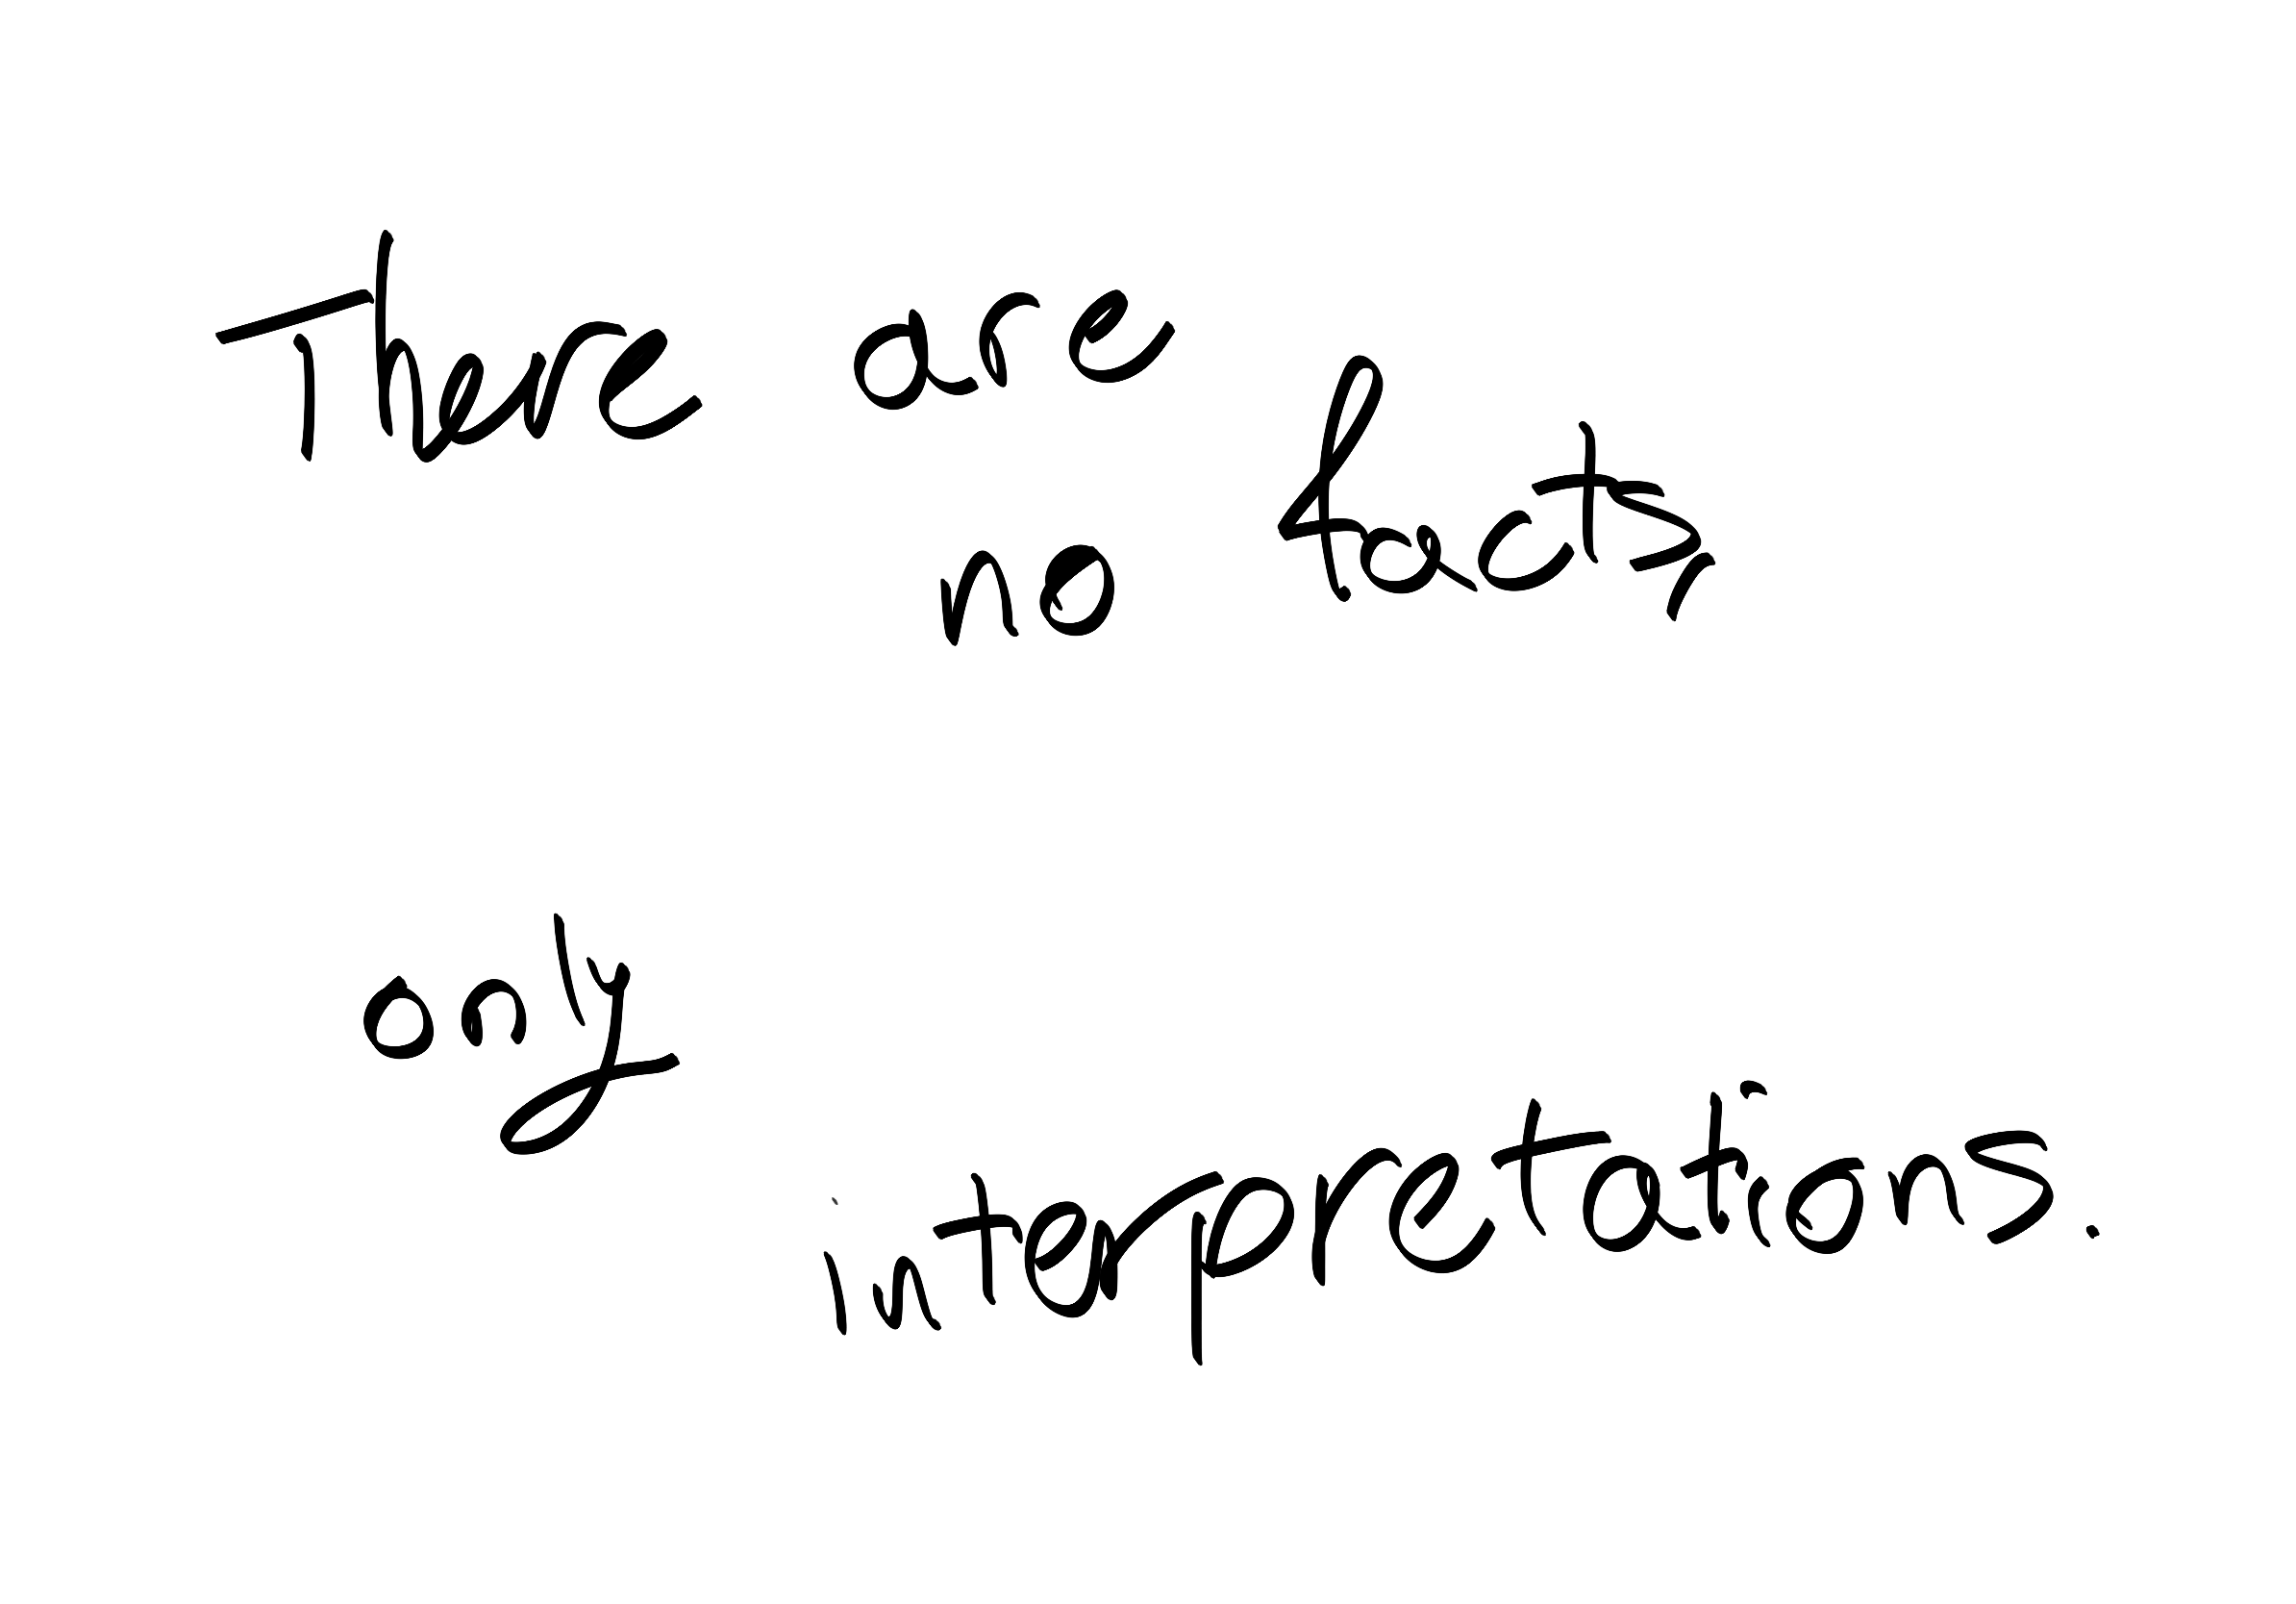 There are
no facts,
only
interpretations.